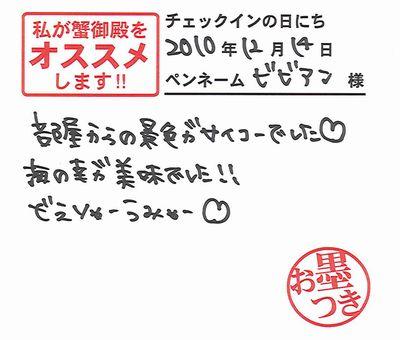 私が蟹御殿を
オススメ
します!!
チェックインの日にち
2010年12月14日
ペンネーム ビビアン 様
部屋からの景色がサイコーでした♡
海の幸が美味でした!!
でぇりゃーうみゃー♡
お墨
つき